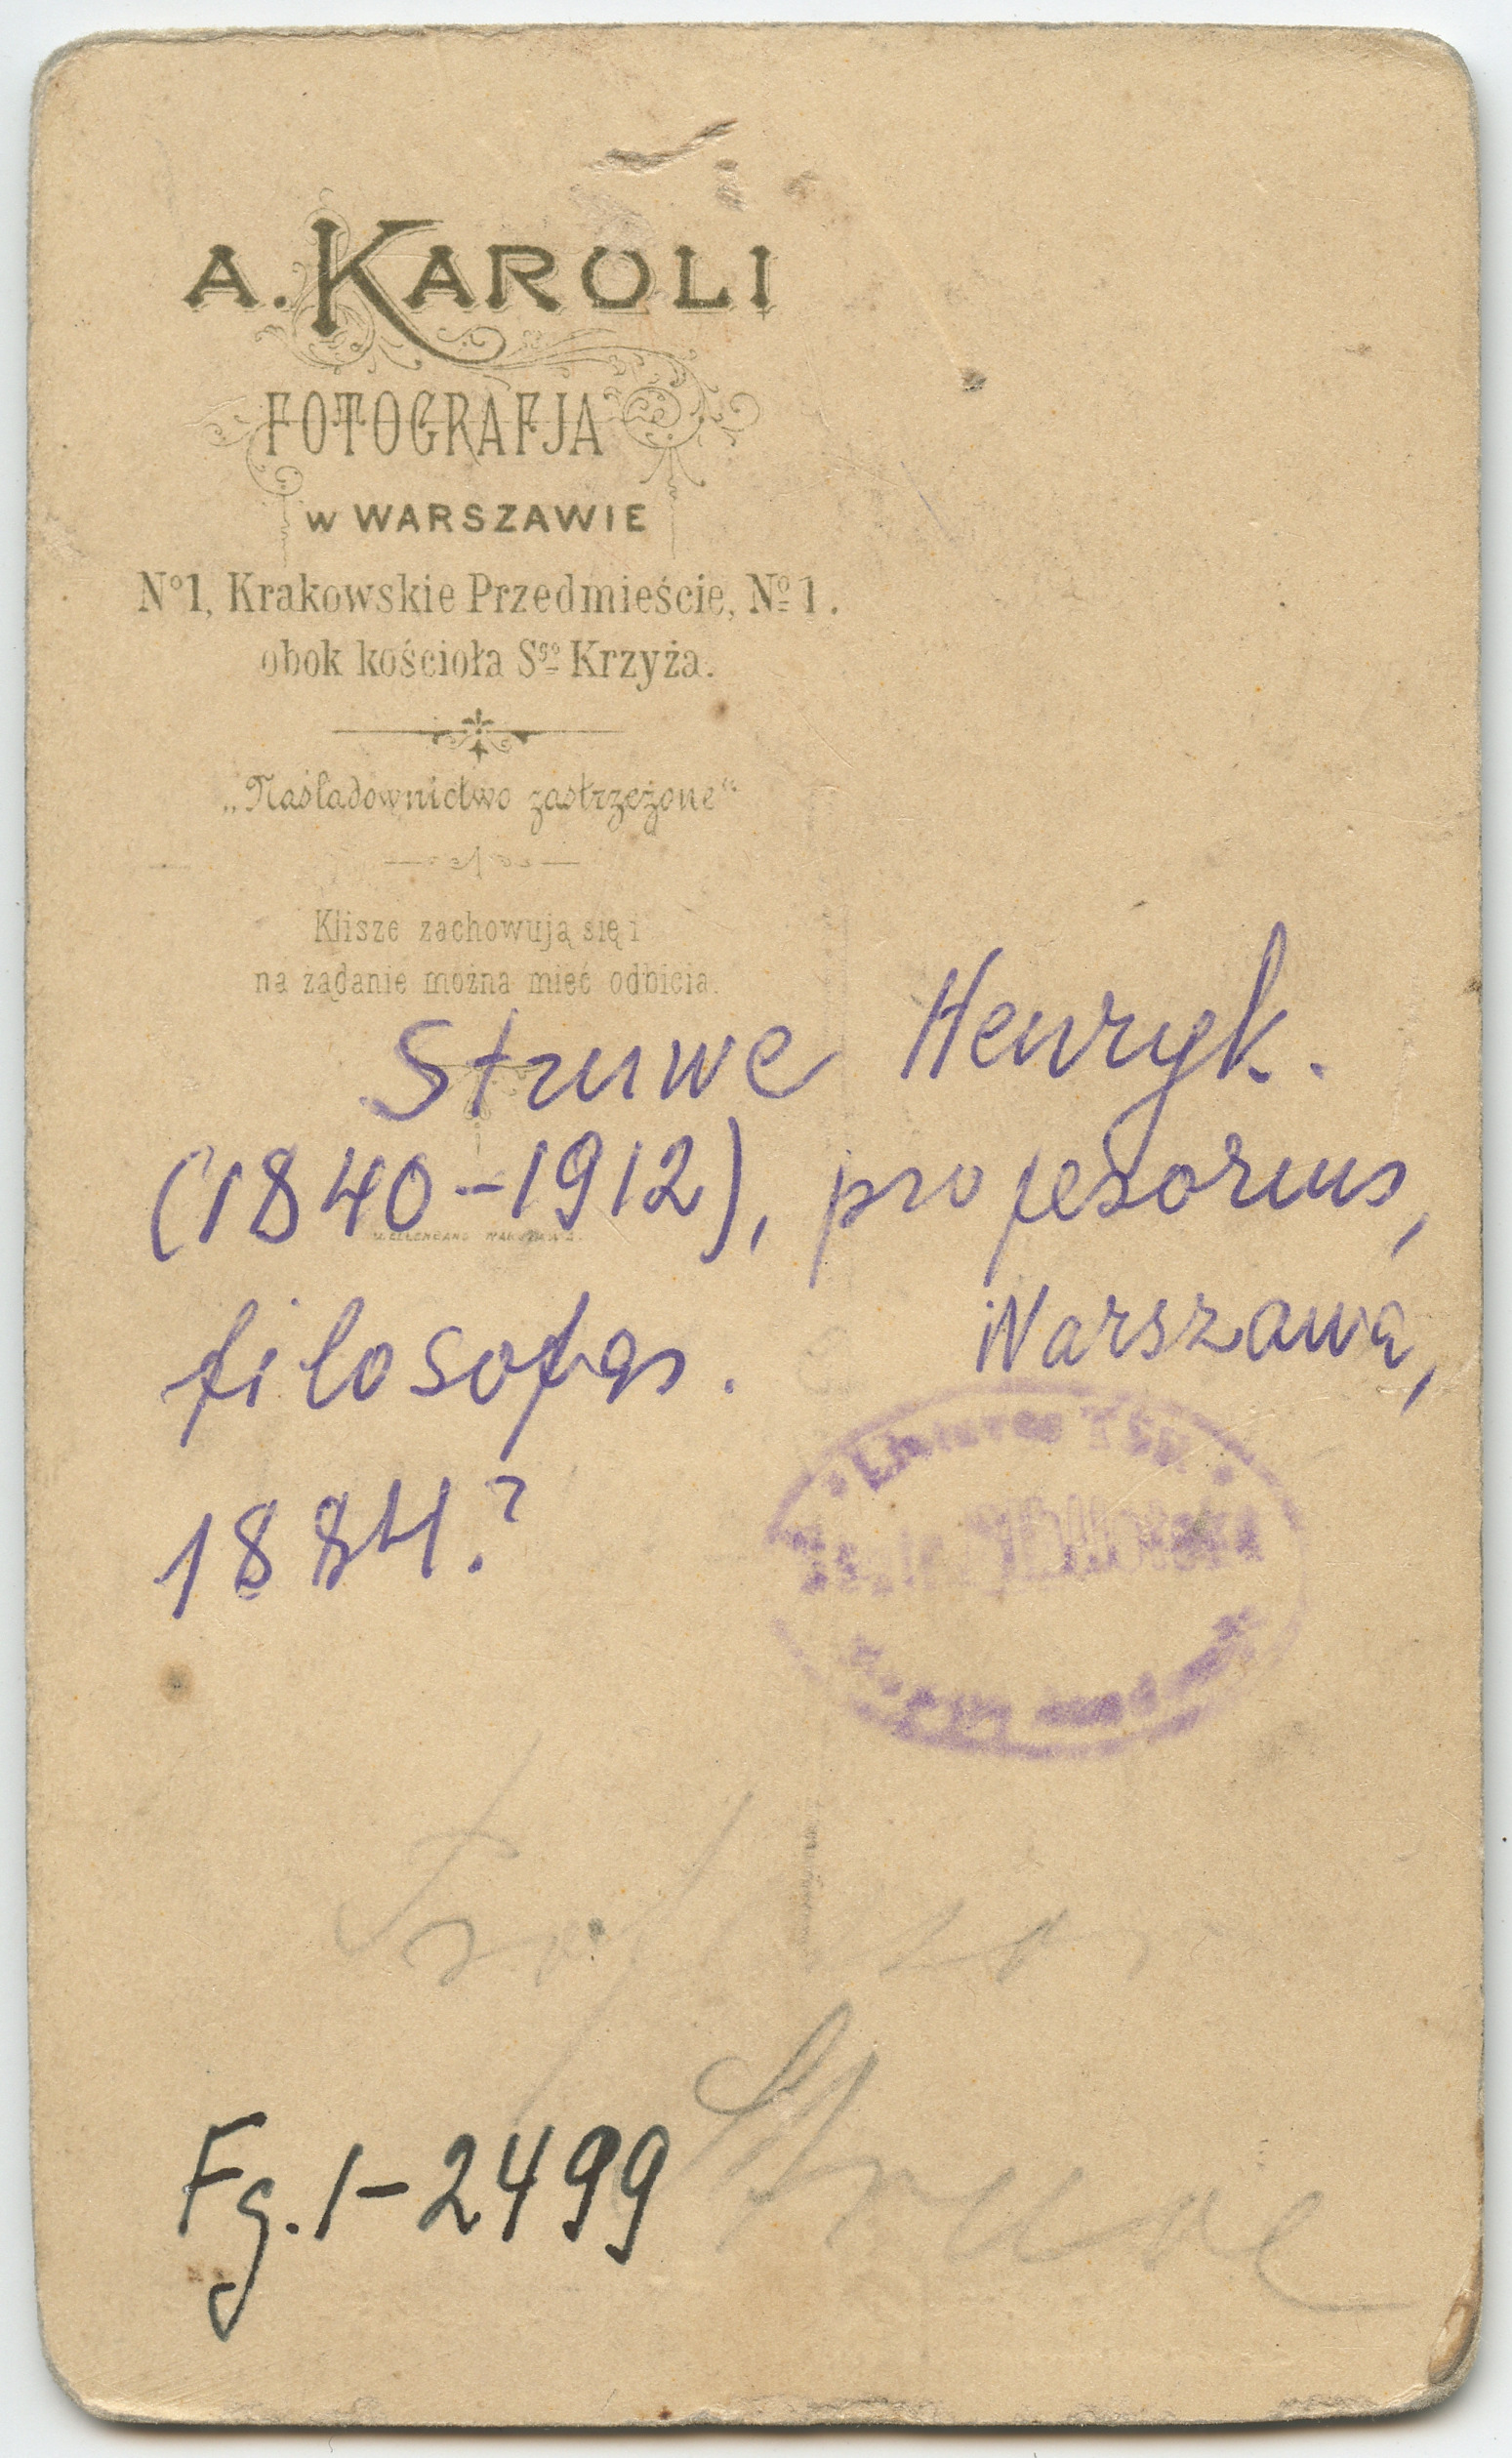 A. KAROLI
FOTOGRAFJA
w WARSZAWIE
Nº1, Krakowskie Przedmieście, Nº 1.
obok kościoła Sgo Krzyża.
„Naśladownictwo zastrzeżone“
Klisze zachowują się i
na żądanie można mieć odbicia.
Struwe Henryk.
(1840-1912), profesorius,
filosofas. Warszawa,
1884?
Lietuvos TSR
Struve
Fg.1-2499